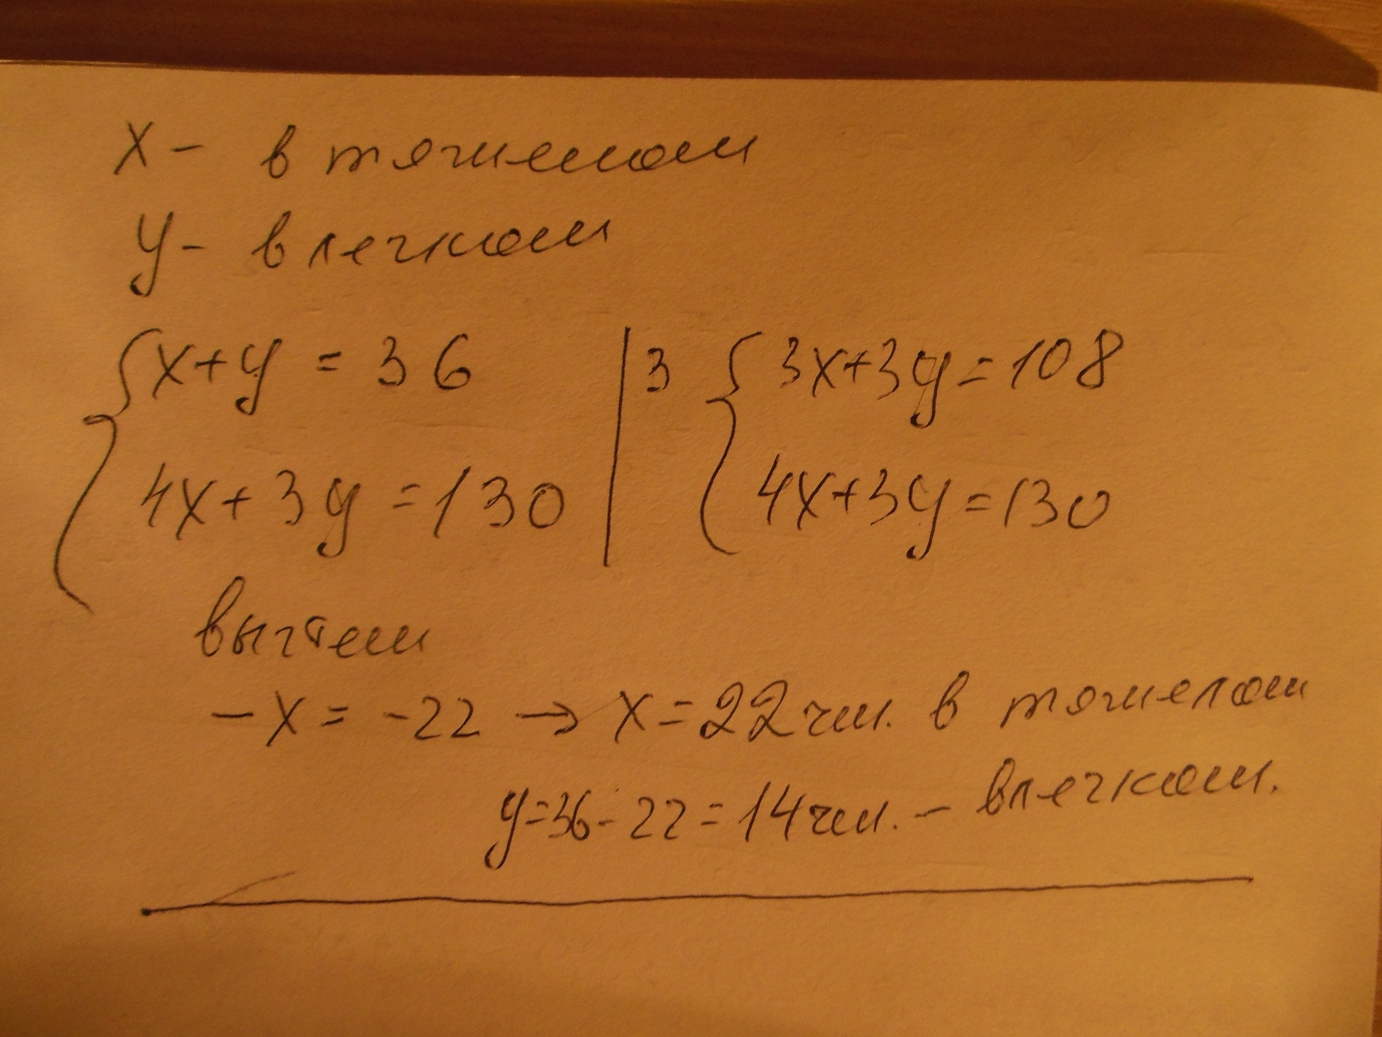 x - в тяжелом
y - в легком
{ x + y = 36 | 3 { 3x + 3y = 108
4x + 3y = 130 | 4x + 3y = 130
вычтем
- x = - 22 → x = 22 чел. в тяжелом
y = 36 - 22 = 14 чел. - в легком.